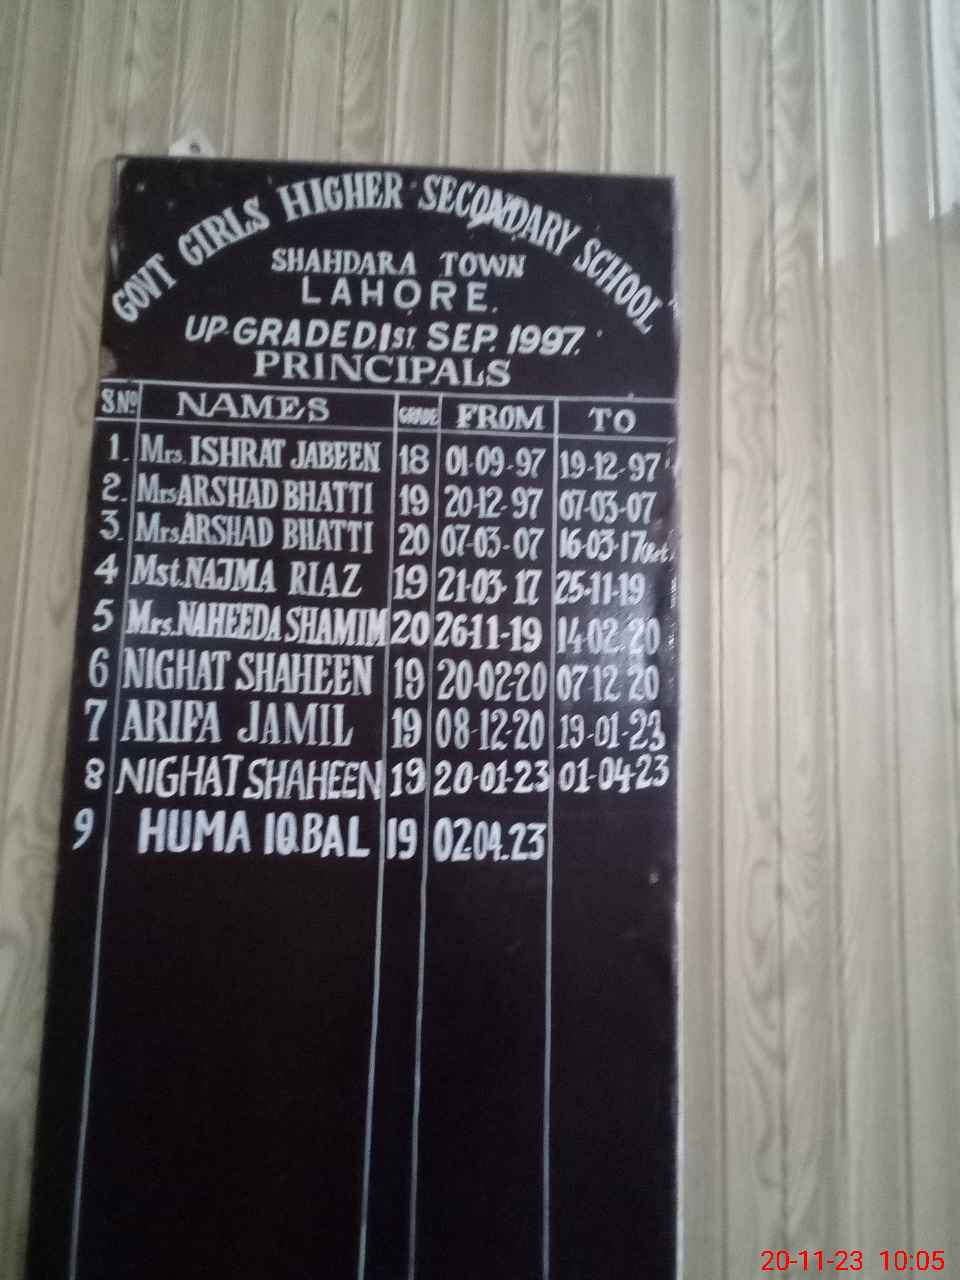 GOVT GIRLS HIGHER SECONDARY SCHOOL
SHAHDARA TOWN
LAHORE.
UP-GRADED.1ST. SEP. 1997.
PRINCIPALS
S.NO NAMES GRADE FROM TO
1. Mrs. ISHRAT JABEEN 18 01-09-97 19-12-97
2. Mrs ARSHAD BHATTI 19 20-12-97 07-03-07
3. Mrs ARSHAD BHATTI 20 07-03-07 16-03-17
4 Mst. NAJMA RIAZ 19 21-03-17 25-11-19
5 Mrs. NAHEEDA SHAMIM 20 26-11-19 14-02-20
6 NIGHAT SHAHEEN 19 20-02-20 07-12-20
7 ARIFA JAMIL 19 08-12-20 19-01-23
8 NIGHAT SHAHEEN 19 20-01-23 01-04-23
9 HUMA IQBAL 19 02-04-23
20-11-23 10:05